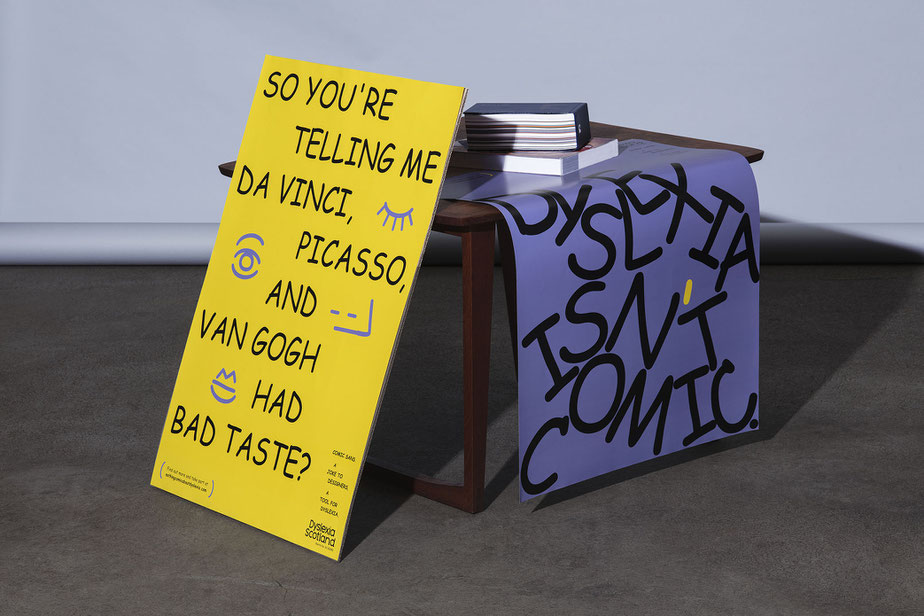 SO YOU'RE
TELLING ME
DA VINCI,
PICASSO,
AND
VAN GOGH
HAD
BAD TASTE?
Find out more and take part at
COMIC SANS
A
JOKE TO
DESIGNERS.
A
TOOL FOR
DYSLEXIA
Dyslexia
Scotland
DYSLEXIA
ISN'T
COMIC.